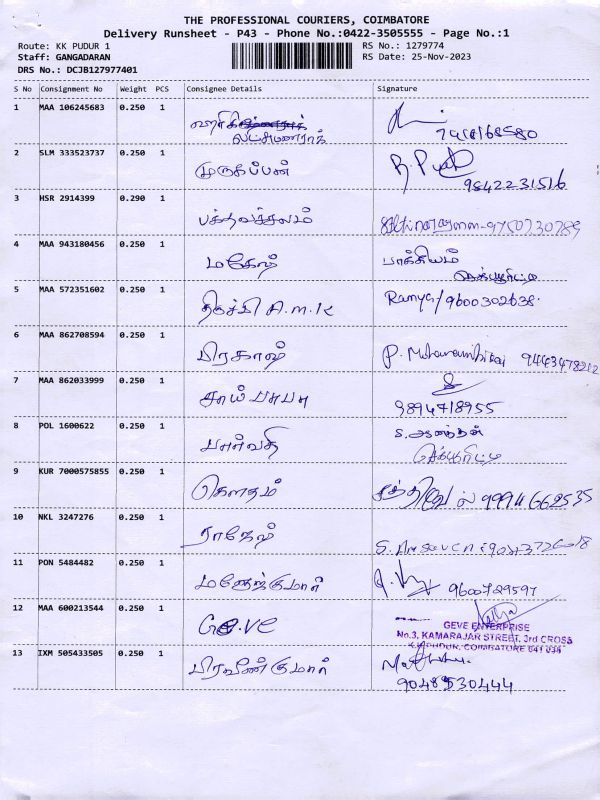 THE PROFESSIONAL COURIERS, COIMBATORE
Delivery Runsheet - P43 - Phone No.:0422-3505555 - Page No.:1
Route: KK PUDUR 1 RS No.: 1279774
Staff: GANGADARAN RS Date: 25-Nov-2023
DRS No.: DCJB127977401
S No Consignment No Weight PCS Consignee Details Signature
1 MAA 106245683 0.250 1
லட்சுமணராக்
2 SLM 333523737 0.250 1 முருகப்பன்
9842231516
3 HSR 2914399 0.290 1 பக்தவச்சலம்
4 MAA 943180456 0.250 1 மகேஷ் பாக்கியம்
5 MAA 572351602 0.250 1 திருச்சி A.m.k Ramya/9600302638.
6 MAA 862708594 0.250 1 பிரகாஷ் 9443478212
7 MAA 862033999 0.250 1 சாய் பாபா
9894718955
8 POL 1600622 0.250 1 பார்வதி s. ஆனந்தன்
செக்யூரிட்டி
9 KUR 7000575855 0.250 1 கௌதம் சக்திவேல் 9994662535
10 NKL 3247276 0.250 1 ராஜேஷ்
11 PON 5484482 0.250 1 மனோஜ்குமார் 9600729597
12 MAA 600213544 0.250 1 Geve
GEVE ENTERPRISE
No.3, KAMARAJAR STREET, 3rd CROSS
K.K.PUDUR, COIMBATORE 641 038
13 IXM 505433505 0.250 1 பிரவீண்குமார்
9048530444